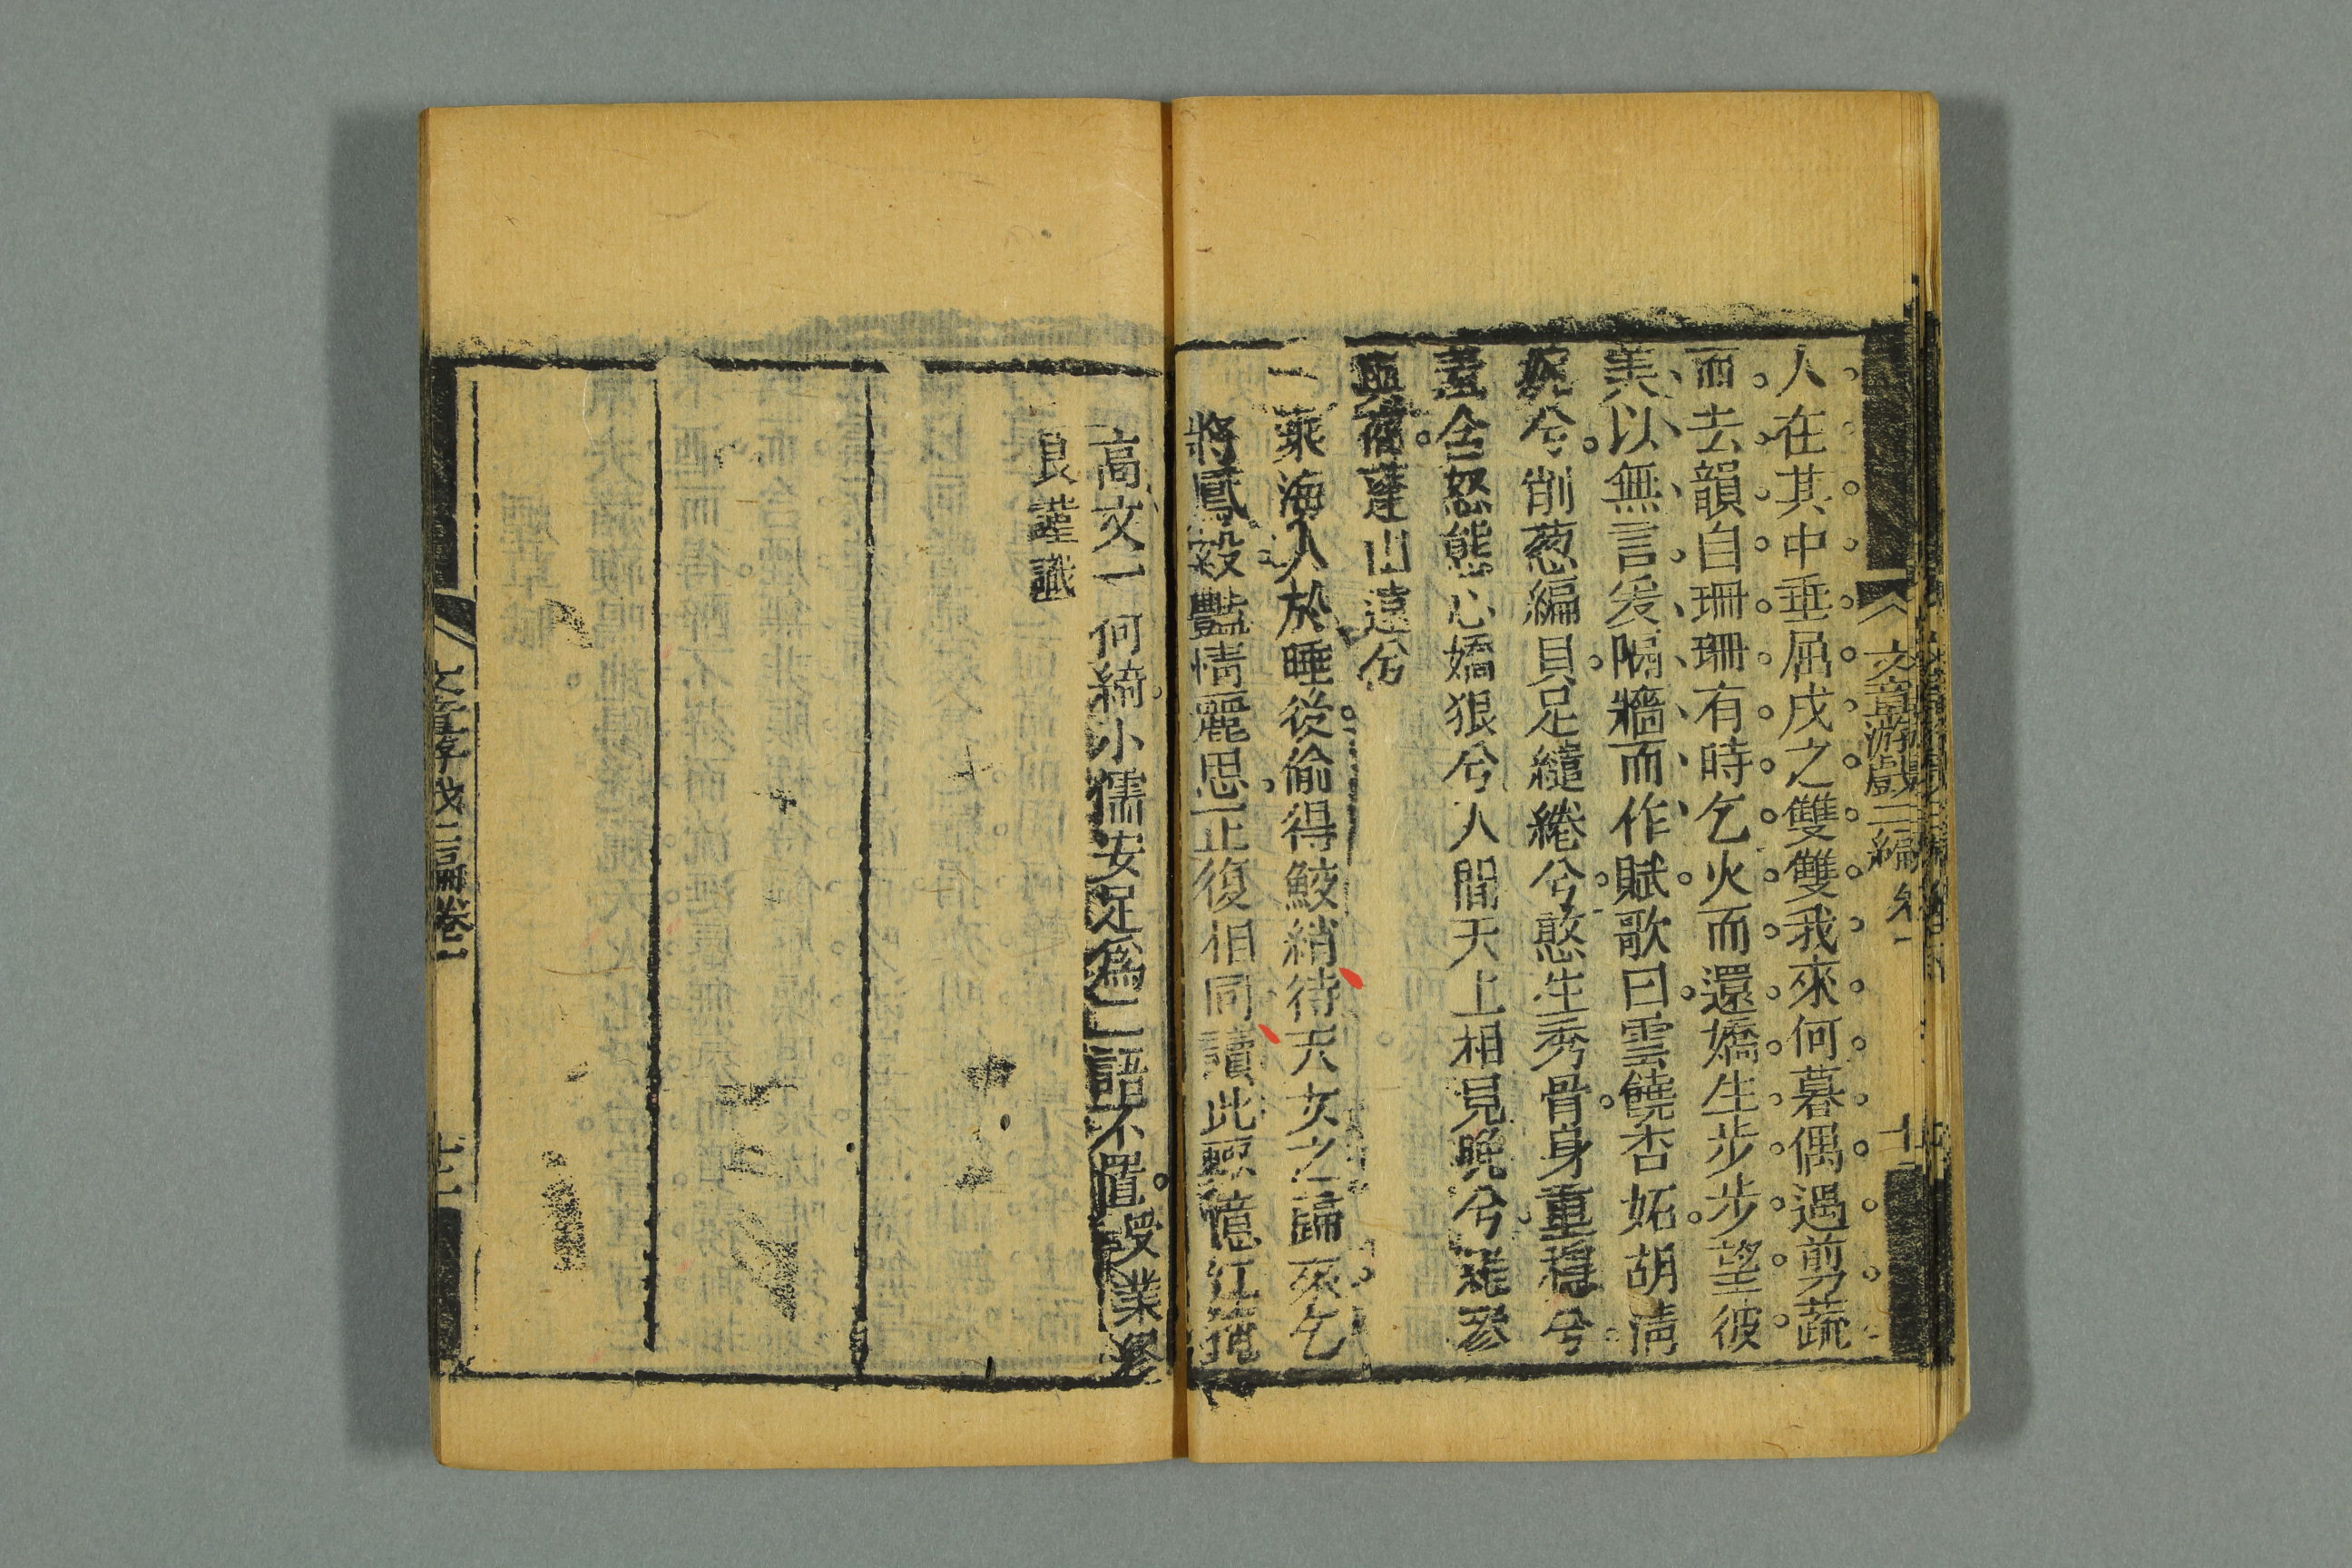 文章游戲二編 卷一
人在其中垂屈戌之雙雙我來何暮偶遇剪蔬
而去韻自珊珊有時乞火而還嬌生步步望彼
美以無言爰隔牆而作賦歌曰雲饒杏妬胡清
婉兮削葱編貝足繾綣兮憨生秀骨身重穩兮
羞含怒態心嬌狠兮人間天上相見晚兮
與 蓬山遠兮
乘海人於睡後偷得鮫綃待天女之歸來乞
將鳳 豔情麗思正復相同讀此 憶紅
高文一何綺小儒安足為二語不置受業繆
良謹識